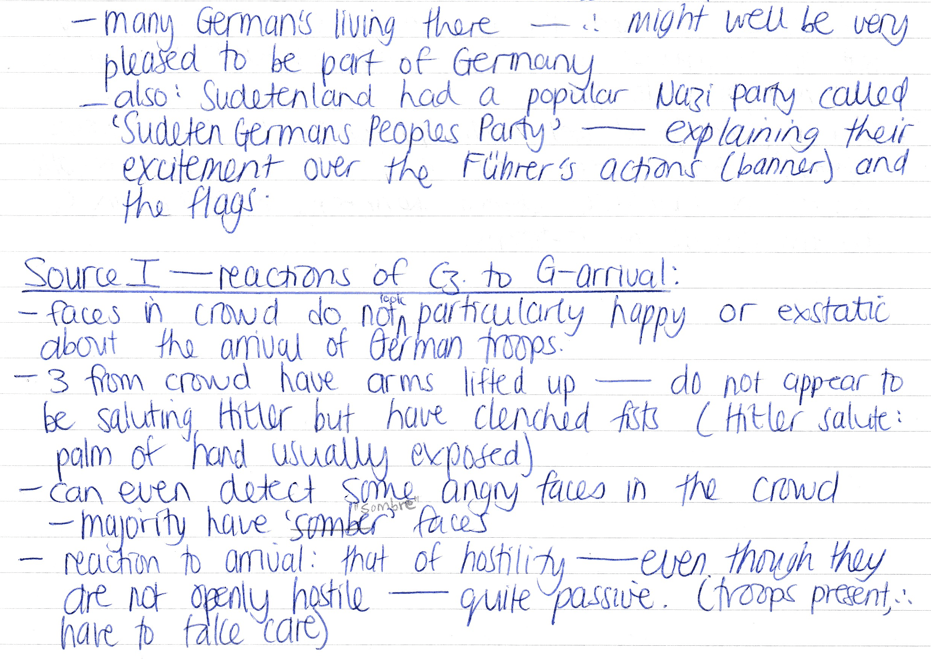 — many German's living there — ∴ might well be very
pleased to be part of Germany
— also: Sudetenland had a popular Nazi party called
'Sudeten Germans Peoples Party' — explaining their
excitement over the Führer's actions (banner) and
the flags.
Source I — reactions of Cz. to G-arrival:
— faces in crowd do not particularly happy or exstatic
about the arrival of German troops.
— 3 from crowd have arms lifted up — do not appear to
be saluting Hitler but have clenched fists (Hitler salute:
palm of hand usually exposed)
— can even detect some angry faces in the crowd
"sombre"
— majority have 'somber' faces
— reaction to arrival: that of hostility — even though they
are not openly hostile — quite passive. (troops present, ∴
have to take care)